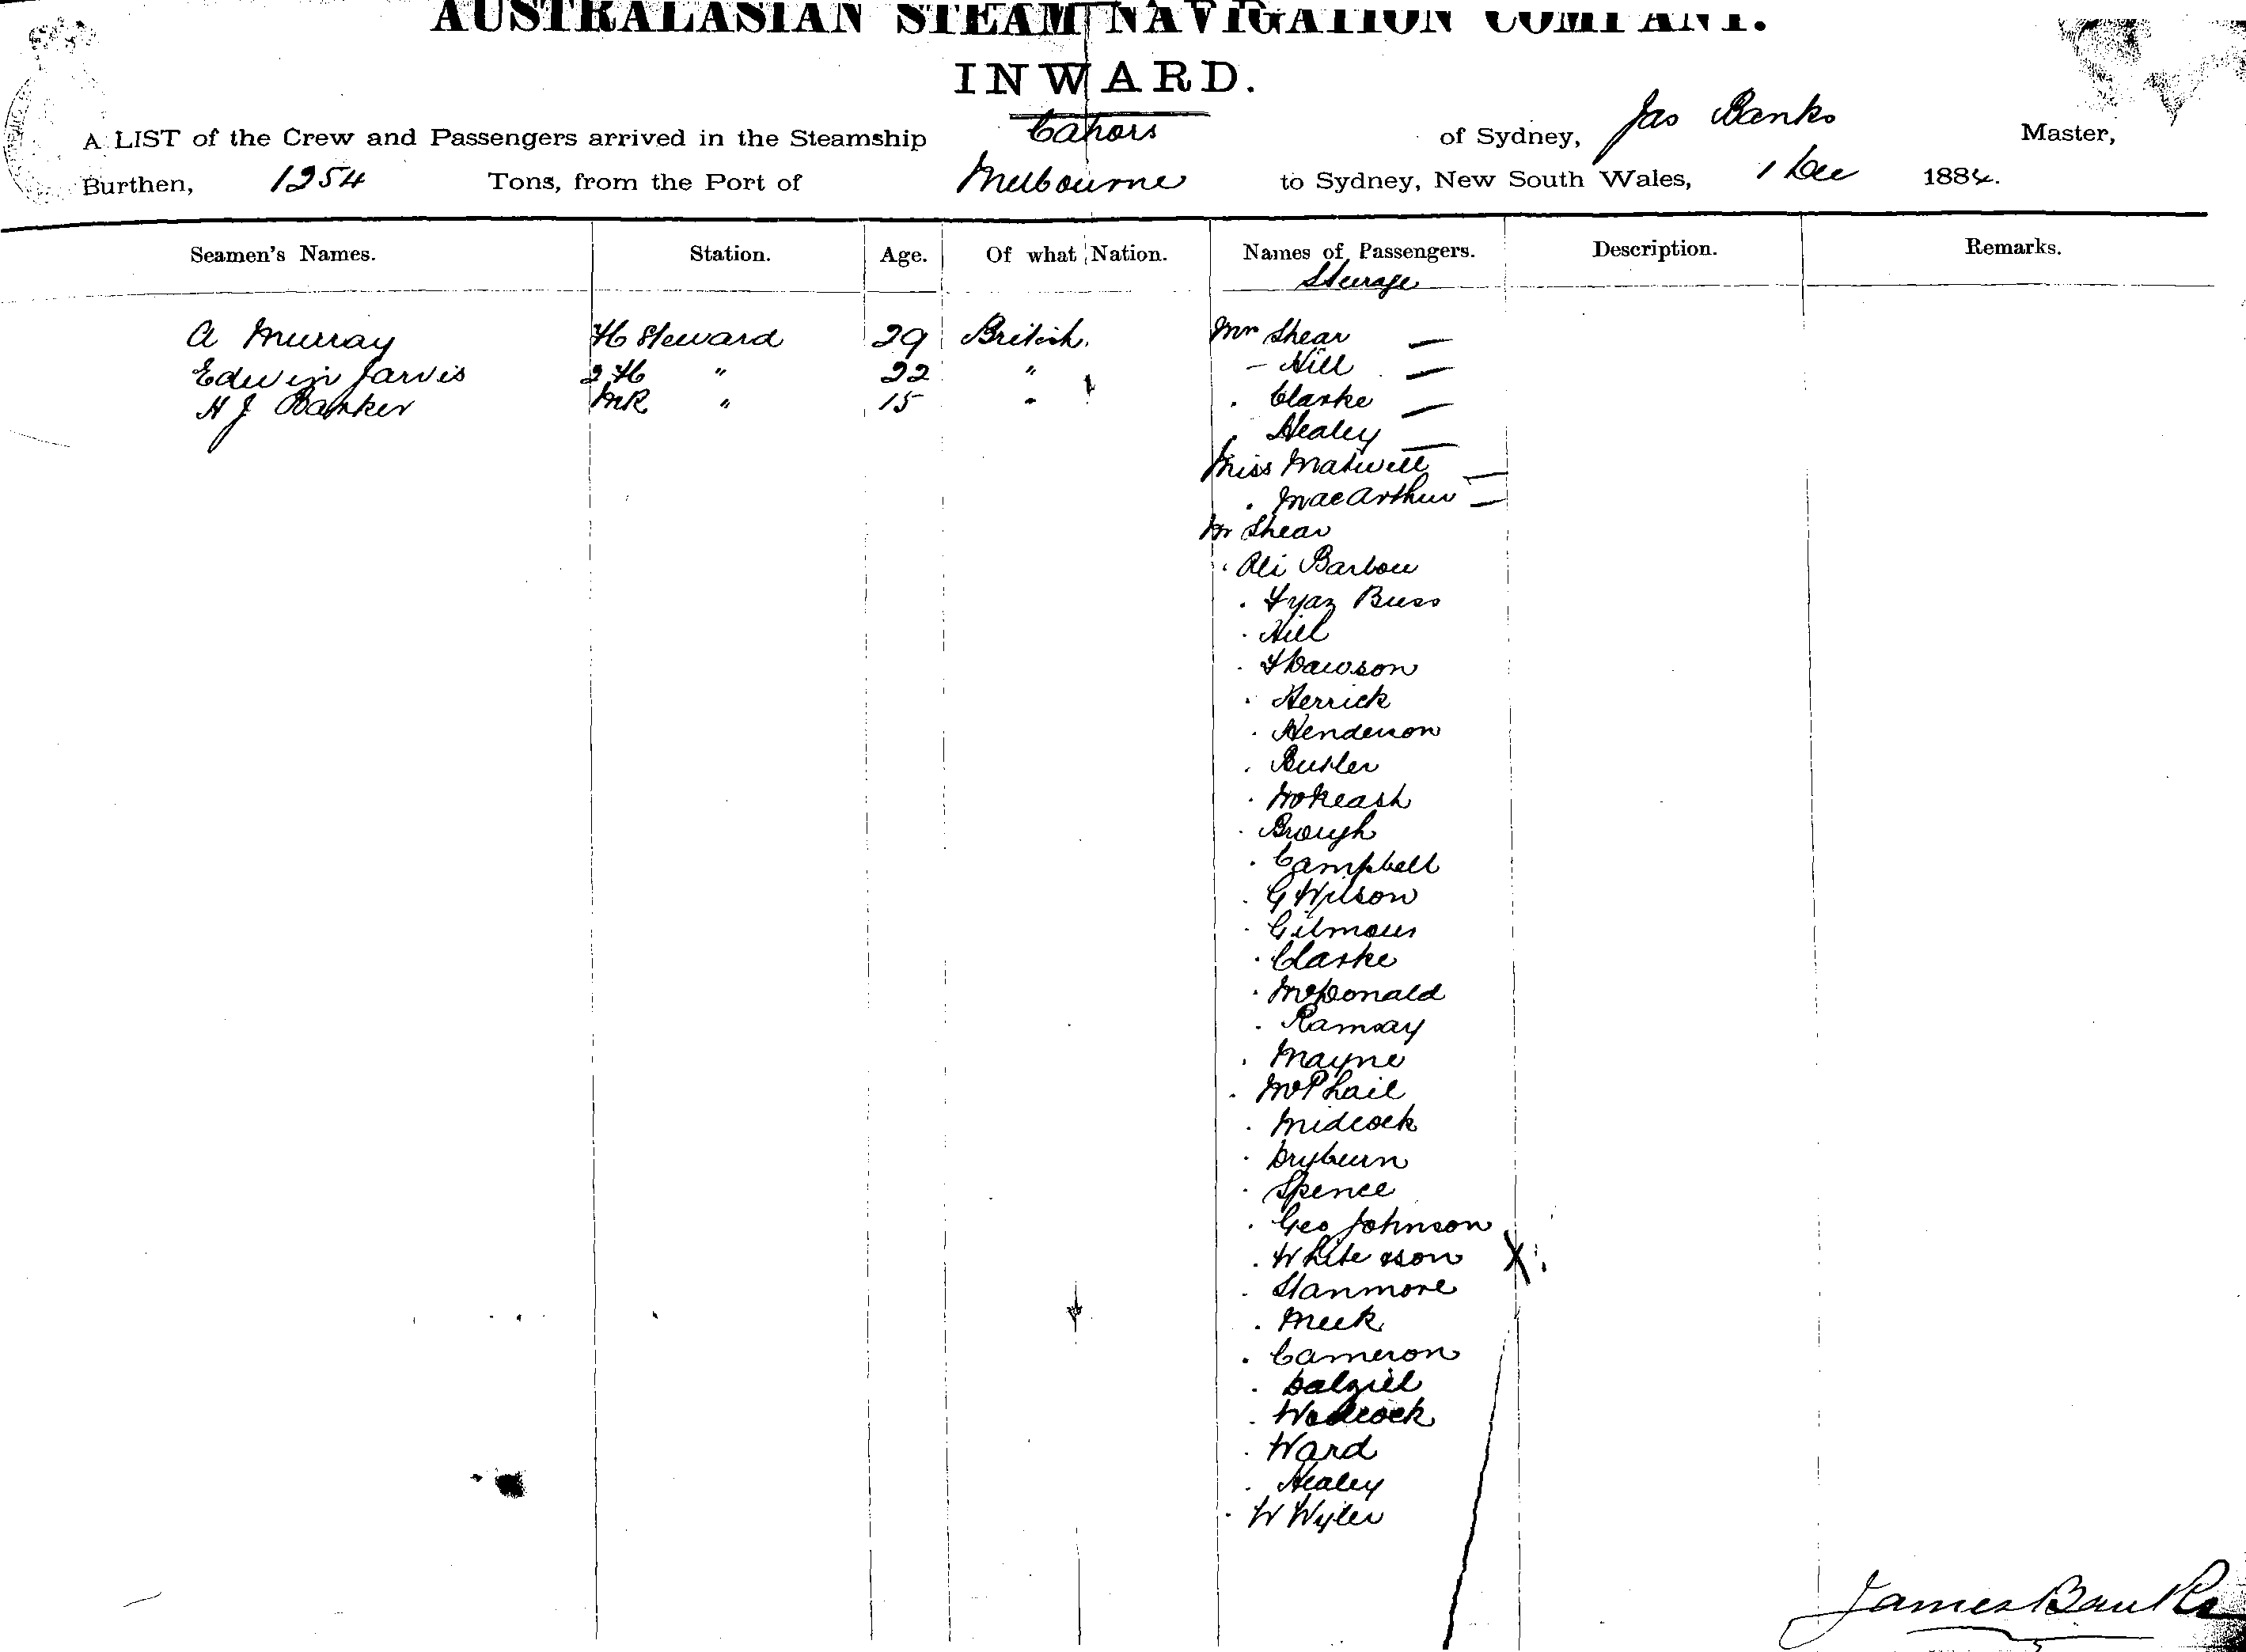 AUSTRALASIAN STEAM NAVIGATION COMPANY.
INWARD.
A LIST of the Crew and Passengers arrived in the Steamship Cahors of Sydney, Jas Banks Master,
Burthen, 1254 Tons, from the Port of Melbourne to Sydney, New South Wales, 1 Dec 1884.
Seamen's Names. Station. Age. Of what Nation. Names of Passengers. Description. Remarks.
Steerage
A Murray FC Steward 29 British. Mrs Shear —
Edwin Jarvis 2 FC " 22 " - Hill —
H J Barker MR " 15 " . Clarke —
. Healey —
Miss Maxwell —
. MacArthur —
Mr Shear
. Ali Barbou
. Fyaz Buss
. Hill
. F Dawson
. Herrick
. Henderson
. Butler
. McKeash
. Brough
. Campbell
. G Wilson
. Gilmour
. Clarke
. McDonald
. Ramsay
. Mayne
. McPhail
. Midcock
. Dryburn
. Spence
. Geo Johnson
. White &son X
. Stanmore
. Meek
. Cameron
. Dalziel
. Woolcock
. Ward
. Healey
. W Wyler
James Banks